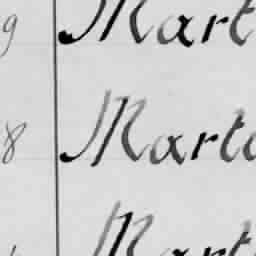 9 Mart
8 Marta
Mart